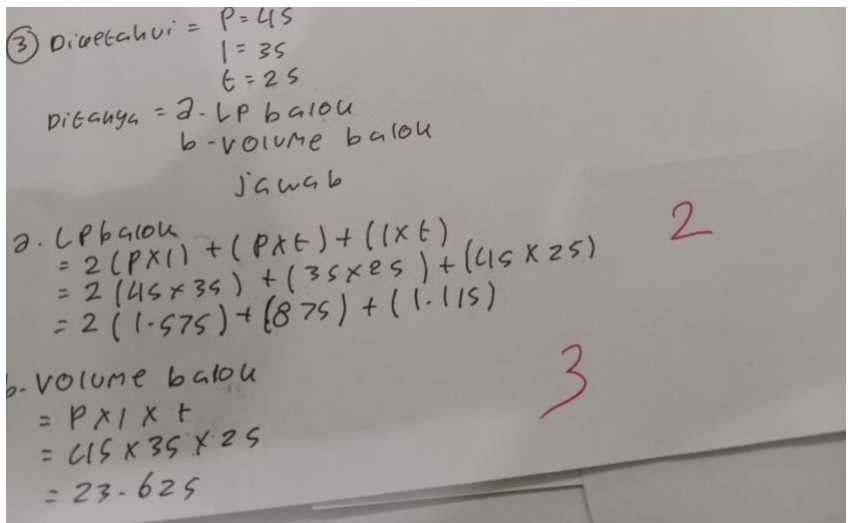 ③ Diketahui = P=45
l = 35
t = 25
Ditanya = a. LP balok
b - volume balok
jawab
a. LP balok
= 2 (Pxl) + (Pxt) + (lxt)
= 2 (45x35) + (35x25) + (45x25)
= 2 (1.575) + (875) + (1.115)
2
b. Volume balok
= P x l x t
= 45 x 35 x 25
= 23.625
3